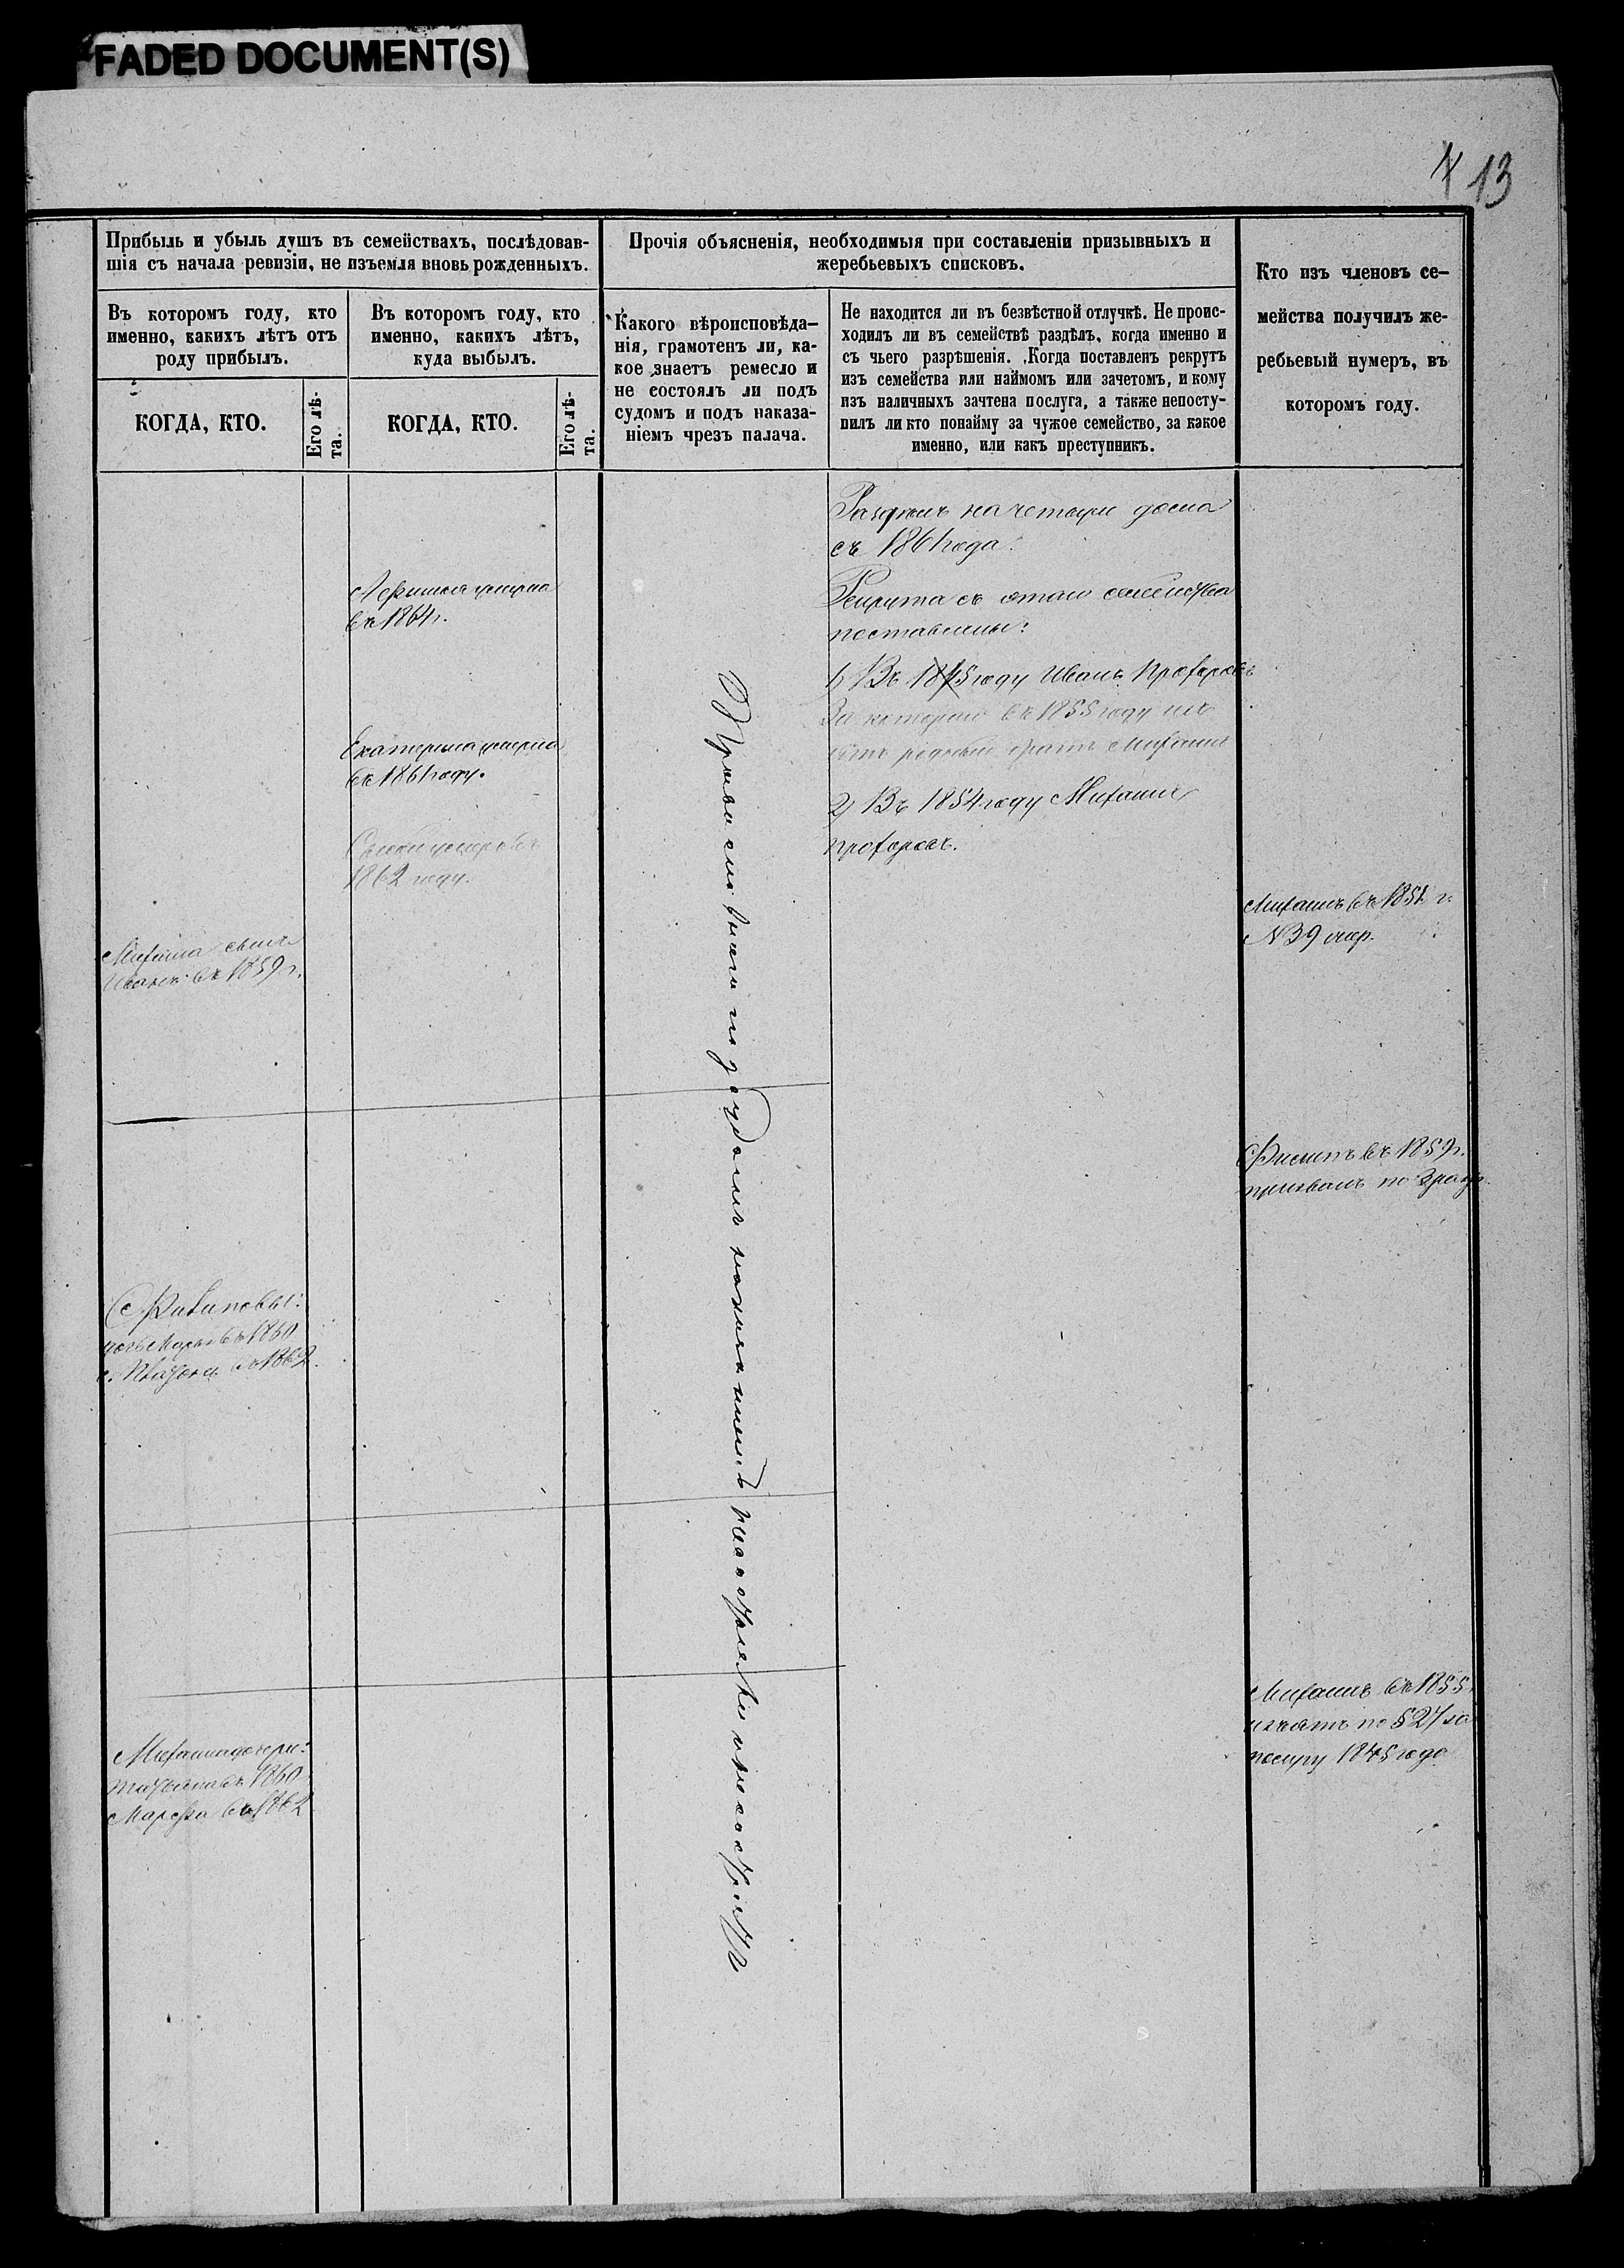 FADED DOCUMENT(S)
13
Прибыль и убыль душъ въ семействахъ, послѣдовав-
шія съ начала ревизіи, не изъемля вновь рожденныхъ.
Въ которомъ году, кто
именно, какихъ лѣтъ отъ
роду прибылъ.
КОГДА, КТО.
Его лѣ-
та.
Въ которомъ году, кто
именно, какихъ лѣтъ,
куда выбылъ.
КОГДА, КТО.
Его лѣ-
та.
Прочія объясненія, необходимыя при составленіи призывныхъ и
жеребьевыхъ списковъ.
Какого вѣроисповѣда-
нія, грамотенъ ли, ка-
кое знаетъ ремесло и
не состоялъ ли подъ
судомъ и подъ наказа-
ніемъ чрезъ палача.
Не находится ли въ безвѣстной отлучкѣ. Не проис-
ходилъ ли въ семействѣ раздѣлъ, когда именно и
съ чьего разрѣшенія. Когда поставленъ рекрутъ
изъ семейства или наймомъ или зачетомъ, и кому
изъ наличныхъ зачтена послуга, а также непосту-
пилъ ли кто понайму за чужое семейство, за какое
именно, или какъ преступникъ.
Кто изъ членовъ се-
мейства получилъ же-
ребьевый нумеръ, въ
которомъ году.
Михаила сынъ
Иванъ въ 1859 г.
Филиповы:
дочь Марья въ 1860
въ 1862
Михаила дочери:
Татьяна въ 1860
Марфа въ 1862
умерла
въ 1864 г.
Екатерина умерла
въ 1861 году.
умеръ въ
1862 году.
Православнаго подъ судомъ
Раздѣлъ на четыри дома
съ 1861 года.
Рекрута съ этаго семейства
поставлены:
1) Въ 1845 году Иванъ Прохоровъ
За котораго въ 1855 году
родный братъ Михаилъ
2) Въ 1854 году Михаилъ
Прохоровъ.
Михаилъ въ 1851 г.
№ 39
Филипъ въ 1859 г.
призванъ по
Михаилъ въ 1855
изъятъ по § 27 за
1845 года